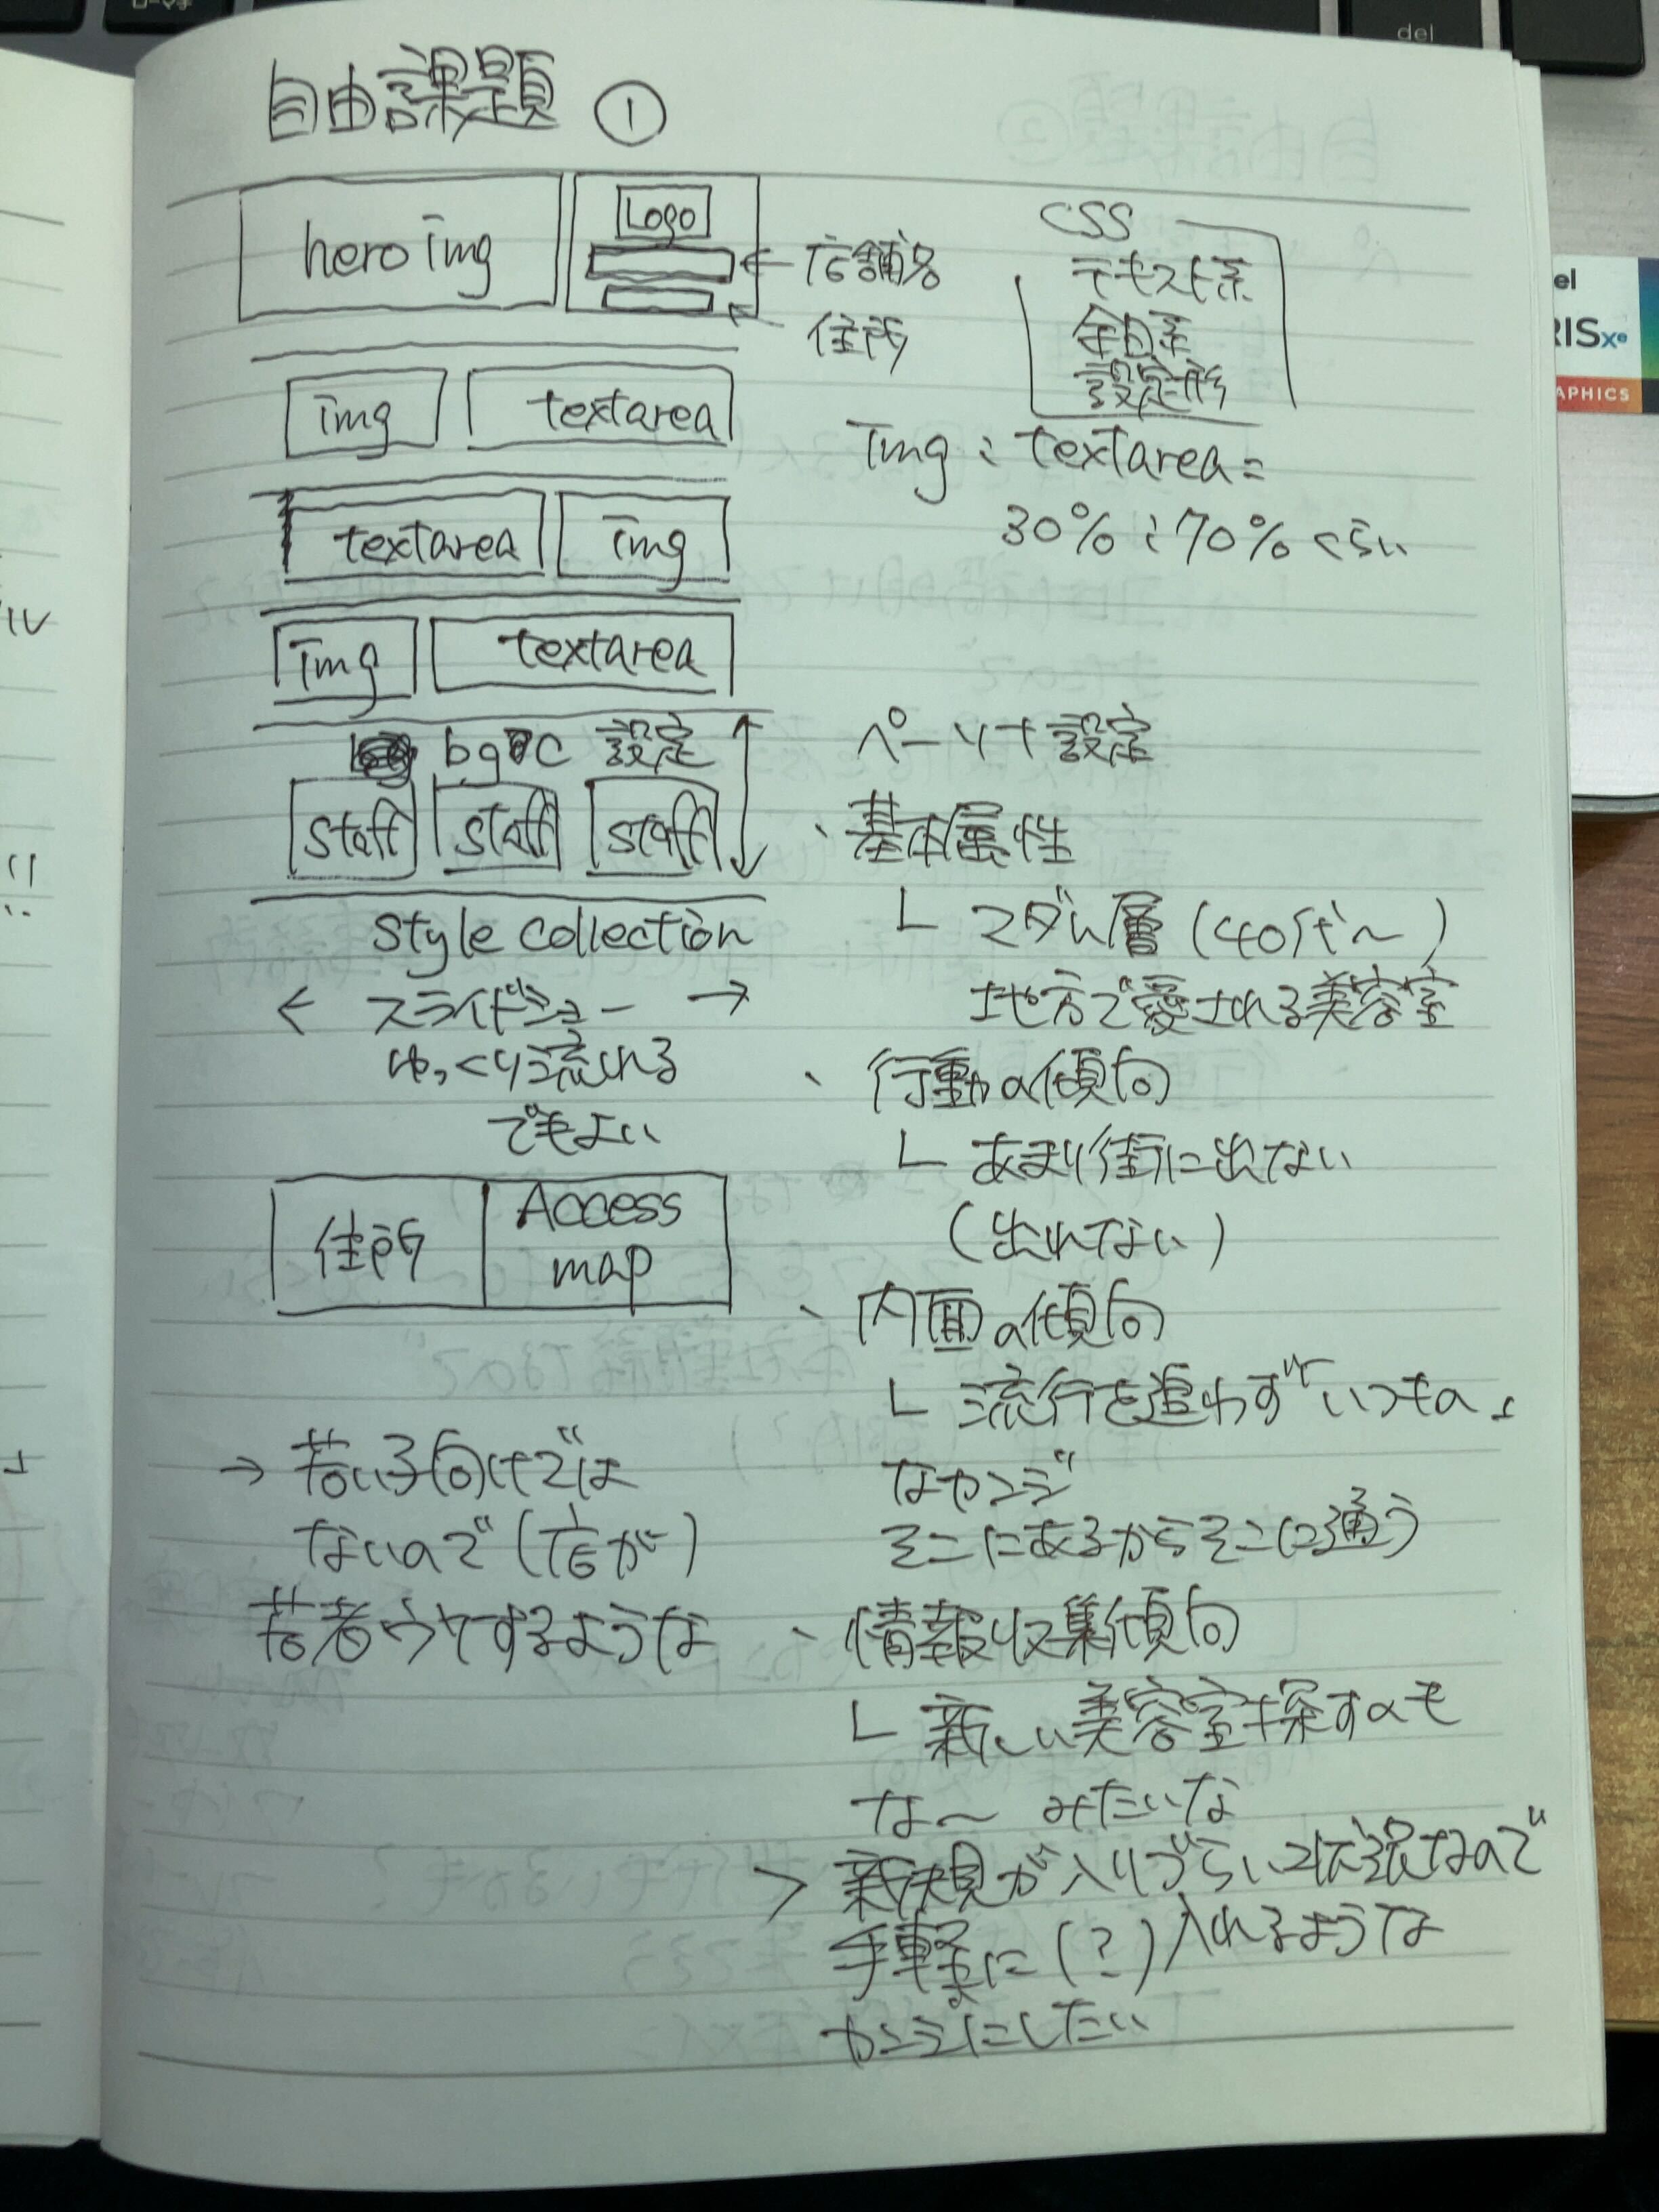 自由課題 ①
hero img
Logo
店舗名
住所
CSS
テキスト系
余白系
設定形
img
textarea
img : textarea =
30% : 70% くらい
textarea
img
img
textarea
bg c 設定
staff
staff
staff
style collection
← スライドショー →
ゆっくり流れる
でもよい
住所
Access
map
→ 若い子向けでは
ないので(店が)
若者ウケするような
ペーソナ設定
、基本属性
└ マダム層(40代~)
地方で愛される美容室
、行動の傾向
└ あまり街に出ない
(出れてない)
、内面の傾向
└ 流行を追わず"いつもの"
なカンジ
そこにあるからそこに通う
、情報収集傾向
└ 新しい美容室探すのも
な~ みたいな
> 新規が入りづらい状況なので
手軽に(?)入れるような
カンジにしたい
del
el
RIS
Xe
APHICS